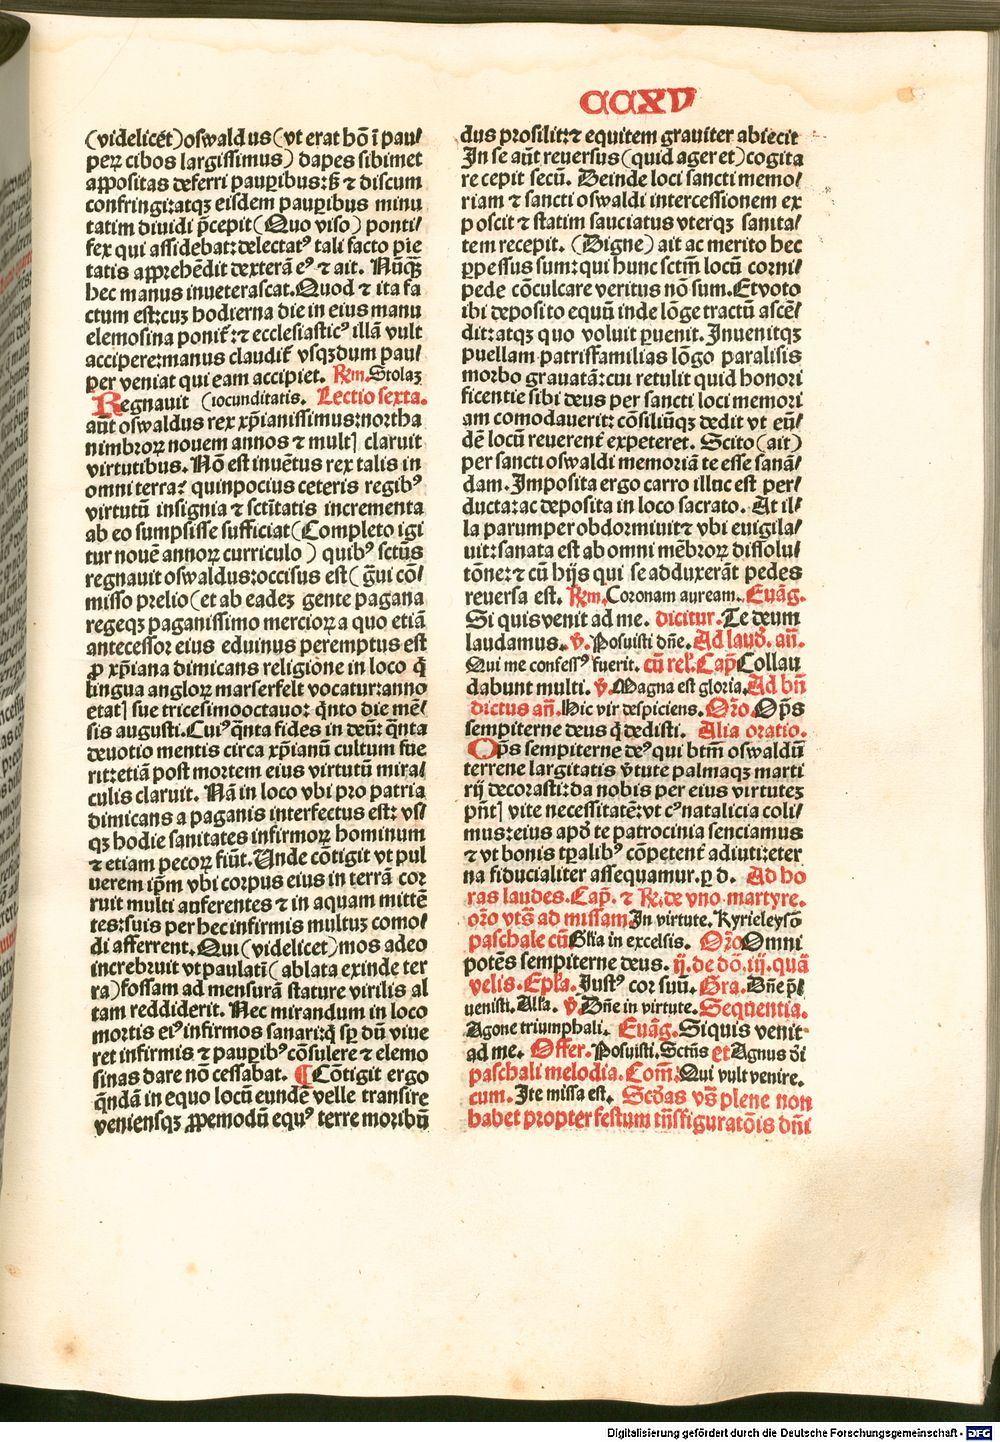 CCXV
(videlicet)oswaldus(vt erat hõ ĩ pau/
peꝝ cibos largissimus) dapes sibimet
appositas deferri pauꝑibus:sꝫ ⁊ discum
confringi:atqꝫ eisdem pauꝑibus minu
tatim diuidi p̃cepit(Quo viso) ponti/
fex qui assidebat:delectatꝰ tali facto pie
tatis apprehẽdit dexterã eꝰ ⁊ ait. Nũqꝫ̃
hec manus inueterascat.Quod ⁊ ita fa
ctum est:cuꝫ hodierna die in eius manu
elemosina ponit᷑:⁊ ecclesiasticꝰ illã vult
accipere:manus claudit᷑ vsqꝫdum pau/
per veniat qui eam accipiet. Rm̃.Stolaꝫ
Regnauit (iocunditatis. Lectio sexta.
aũt oswaldus rex xp̃ianissimus:northa
nimbroꝝ nouem annos ⁊ multꝭ claruit
virtutibus.Nõ est inuẽtus rex talis in
omni terra: quinpocius ceteris regibꝰ
virtutũ insignia ⁊ sctĩtatis incrementa
ab eo sumpsisse sufficiat(Completo igi
tur nouẽ annoꝝ curriculo) quibꝰ sctũs
regnauit oswaldus:occisus est(g̃ui cõ/
misso prelio(et ab eadeꝫ gente pagana
regeqꝫ paganissimo mercioꝝ a quo etiã
antecessor eius eduinus peremptus est
ꝓ xp̃iana dimicans religione in loco q̃
lingua angloꝝ marserfelt vocatur:anno
etatꝭ sue tricesimooctauo: q̃nto die mẽ/
sis augusti.Cuiꝰ q̃nta fides in deũ: q̃nta
deuotio mentis circa xp̃ianũ cultum fue
rit:etiã post mortem eius virtutũ mira/
culis claruit. Nã in loco vbi pro patria
dimicans a paganis interfectus est: vs/
qꝫ hodie sanitates infirmoꝝ hominum
⁊ etiam pecoꝝ fiũt.Unde cõtigit vt pul
uerem ip̃m vbi corpus eius in terrã cor
ruit multi auferentes ⁊ in aquam mittẽ
tes:suis per hec infirmis multuꝫ como/
di afferrent.Qui(videlicet)mos adeo
increbruit vt paulatĩ(ablata exinde ter
ra)fossam ad mensurã stature virilis al
tam reddiderit. Nec mirandum in loco
mortis eiꝰ infirmos sanari:q̃ sꝑ dũ viue
ret infirmis ⁊ pauꝑibꝰ cõsulere ⁊ elemo
sinas dare nõ cessabat. ¶Cõtigit ergo
q̃ndã in equo locũ eundẽ velle transire
veniensqꝫ ꝓpemodũ equꝰ terre moribũ
dus prosilit:⁊ equitem grauiter abiecit
In se aũt reuersus(quid ageret)cogita
re cepit secũ. Deinde loci sancti memo/
riam ⁊ sancti oswaldi intercessionem ex
poscit ⁊ statim sauciatus vterqꝫ sanita/
tem recepit. (Digne) ait ac merito hec
ꝑpessus sum:qui hunc sctm̃ locũ corni/
pede cõculcare veritus nõ sum.Et voto
ibi deposito equũ inde lõge tractũ ascẽ/
dit:atqꝫ quo voluit ꝑuenit. Inuenitqꝫ
puellam patrisfamilias lõgo paralisis
morbo grauatã:cui retulit quid honori
ficentie sibi deus per sancti loci memori
am comodauerit: cõsiliũqꝫ dedit vt eũ/
dẽ locũ reuerent᷑ expeteret. Scito(ait)
per sancti oswaldi memoriã te esse sanã/
dam.Imposita ergo carro illuc est per/
ducta:ac deposita in loco sacrato. At il/
la parumper obdormiuit:⁊ vbi euigila/
uit:sanata est ab omni mẽbroꝝ dissolu/
tõne:⁊ cũ hijs qui se adduxerãt pedes
reuersa est. Rm̃.Coronam auream. Euãg.
Si quis venit ad me. dicitur.Te deum
laudamus. ℣.Posuisti dñe. Ad laud̃. añ.
Qui me confessꝰ fuerit. cũ rel̃. Cap̃ Collau
dabunt multi. ℣.Magna est gloria.Ad bñ
dictus añ.Hic vir despiciens.Or̃o.Op̃s
sempiterne deus q̃ dedisti. Alia oratio.
Op̃s sempiterne deꝰ qui btm̃ oswaldũ
terrene largitatis v̾tute palmaqꝫ marti
rij decorasti:da nobis per eius virtuteꝫ
pñtꝭ vite necessitatẽ:vt cꝰ natalicia coli/
mus:eius apd̃ te patrocinia senciamus
⁊ vt bonis tp̃alibꝰ cõpetent᷑ adiuti:eter
na fiducialiter assequamur.ꝑ d. Ad ho
ras laudes.Cap̃. ⁊ R̃.de vno martyre.
or̃o vts̃ ad missam In virtute. Kyrieleysõ
paschale cũ Gl̃ia in excelsis. Or̃o Omni
potẽs sempiterne deus. ij.de dõ.iij.quã
velis.Epl̃a.Justꝰ cor suũ. Gra. Dñe p̃/
uenisti.All̃a. ℣.Dñe in virtute.Sequentia.
Agone triumphali. Euãg.Siquis venit
ad me. Offer.Posuisti.Sctũs et Agnus d̃i
paschali melodia.Com̃.Qui vult venire.
cum.Ite missa est. Sed̾as vs̾ plene non
habet propter festum trñsfiguratõis dñi
Digitalisierung gefördert durch die Deutsche Forschungsgemeinschaft - DFG